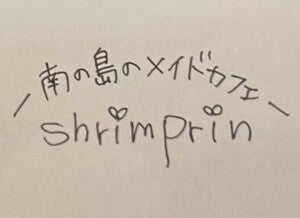 南の島のメイドカフェ
shrimprin